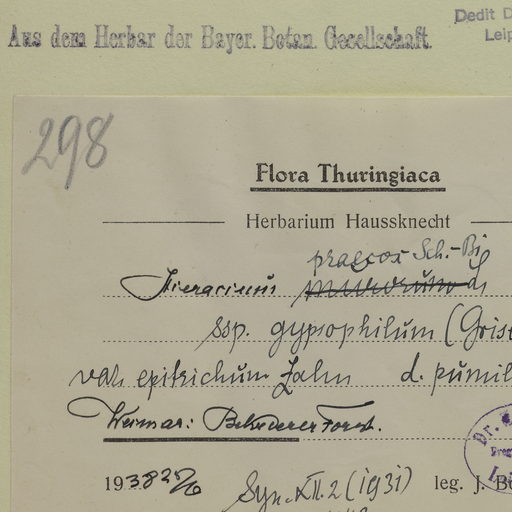 Aus dem Herbar der Bayer. Botan. Gesellschaft.
Dedit D
Leip
298
Flora Thuringiaca
Herbarium Haussknecht
praecox Sch.-Bi
Hieracium murorum
ssp. gypsophilum (Grise
var. epitrichum Zahn d. pumil
Weimar: Belvederer Forst.
Dr.
1938 25/6 Syn. XII. 2 (1931) leg. J. Bo